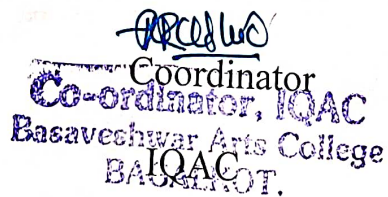 Coordinator
Co-ordinator, IQAC
Basaveshwar Arts College
IQAC
BAGALKOT.